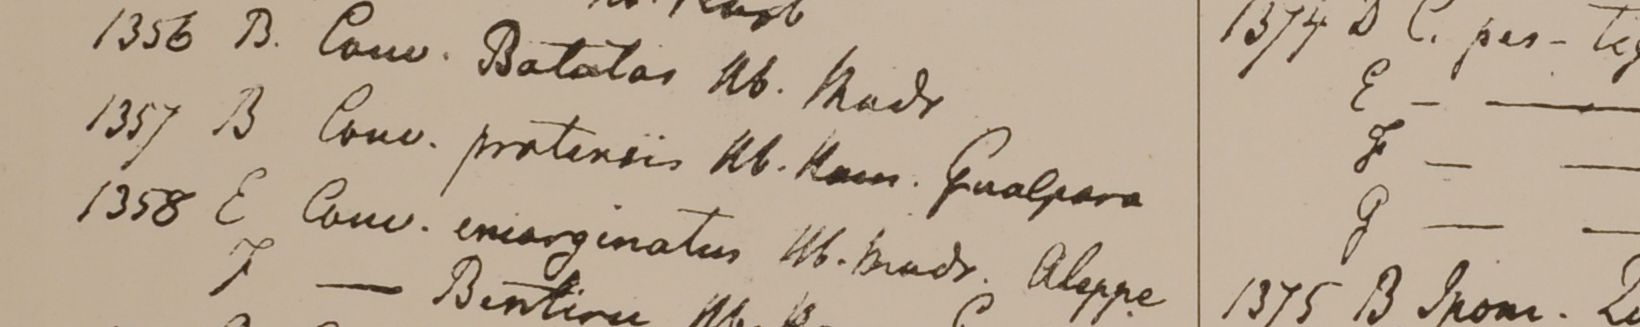 1356 B. Conv. Batatas Hb. Madr
1357 B Conv. pratensis Hb. Ham. Gualpara
1358 E Conv. emarginatus Hb. Madr. Aleppe
F —
1374 D C. pes-tig
E – —
F — —
G — —
1375 B Ipom.